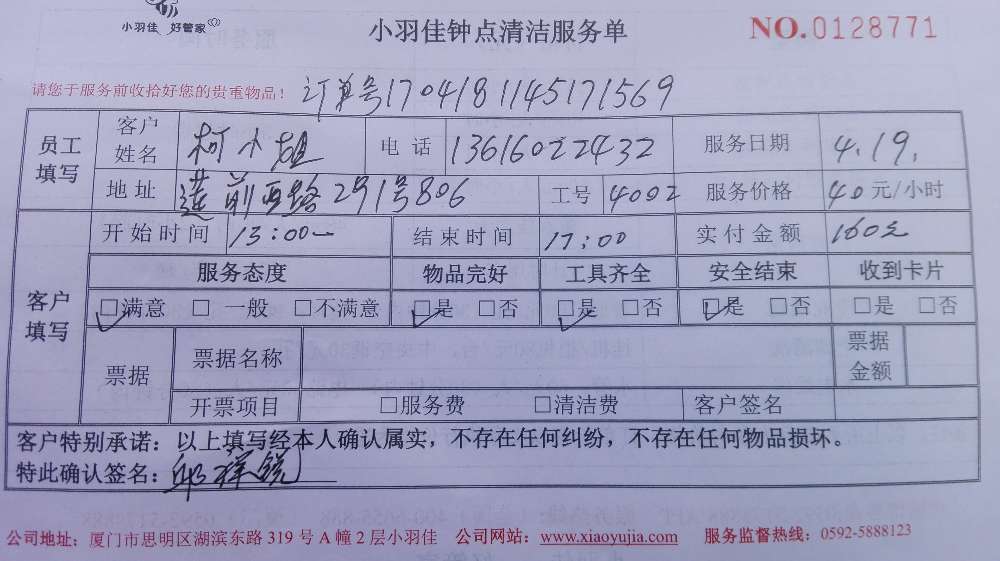 小羽佳 好管家
小羽佳钟点清洁服务单 NO.0128771
请您于服务前收拾好您的贵重物品! 订单号1704181145171569
员工填写 客户姓名 柯小姐 电话 13616022432 服务日期 4.19.
地址 莲前西路291号806 工号 4092 服务价格 40元/小时
客户填写 开始时间 13:00 结束时间 17:00 实付金额 160元
服务态度 物品完好 工具齐全 安全结束 收到卡片
☑满意 □一般 □不满意 ☑是 □否 ☑是 □否 ☑是 □否 □是 □否
票据 票据名称 票据金额
开票项目 □服务费 □清洁费 客户签名
客户特别承诺:以上填写经本人确认属实,不存在任何纠纷,不存在任何物品损坏。
特此确认签名:
公司地址:厦门市思明区湖滨东路 319 号 A 幢 2 层小羽佳 公司网站:www.xiaoyujia.com 服务监督热线:0592-5888123